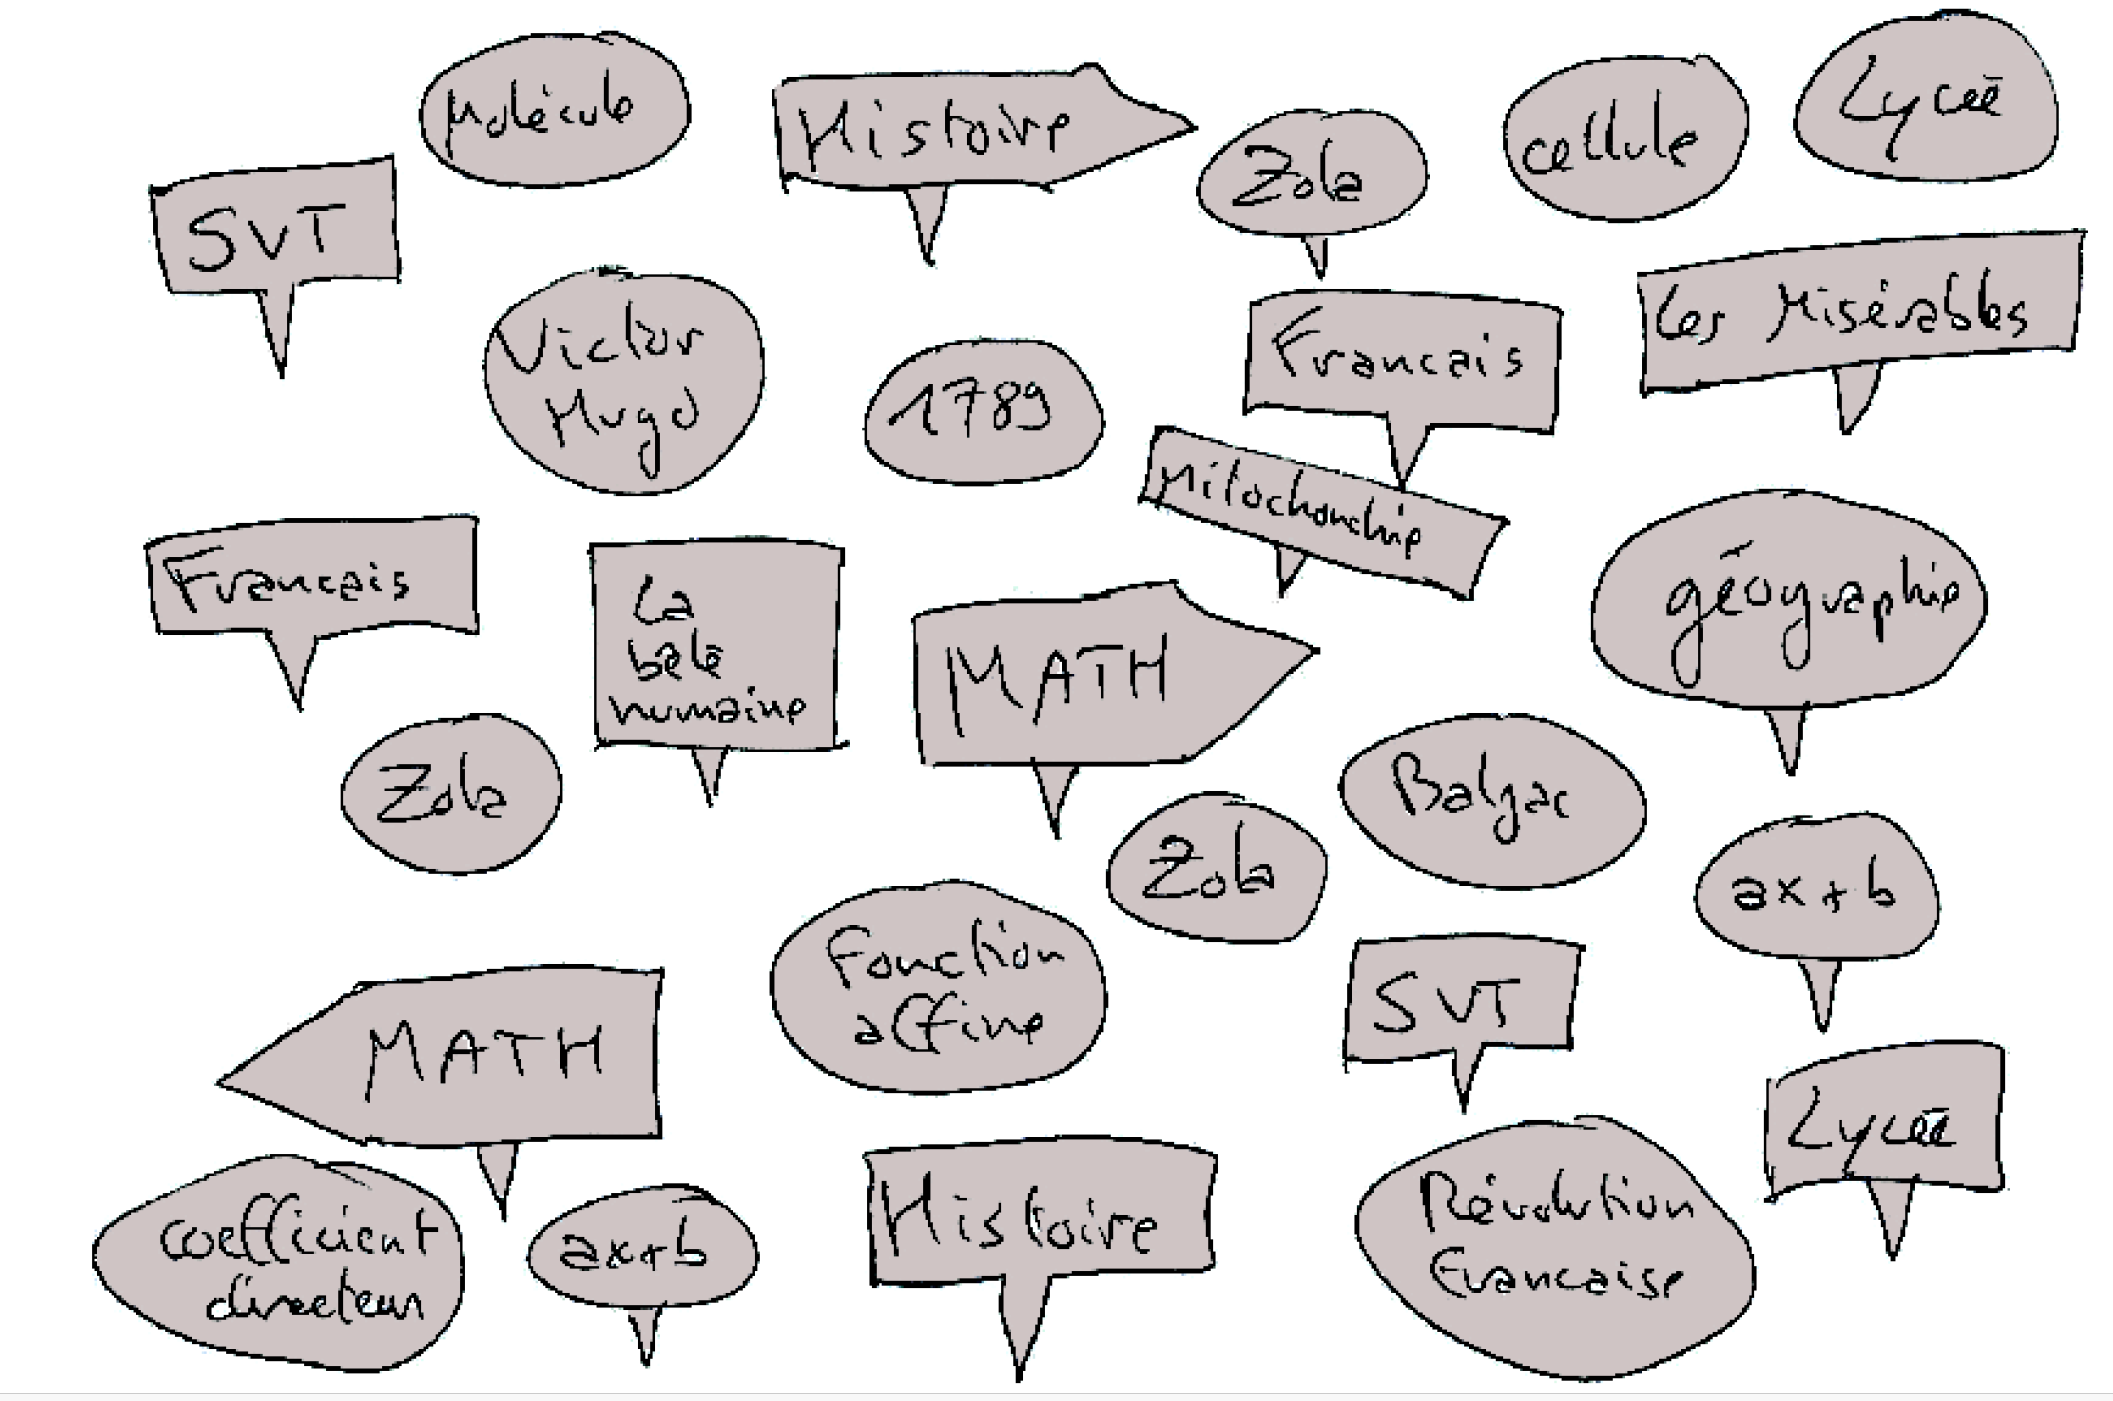 Molécule
Histoire
Zola
cellule
Lycée
SVT
Victor
Hugo
1789
Francais
Les Misérables
Mitochondrie
Francais
La
bete
humaine
MATH
géographie
Zola
Balzac
Zola
ax+b
Fonction
affine
SVT
MATH
Lycée
coefficient
directeur
ax+b
Histoire
Révolution
Francaise